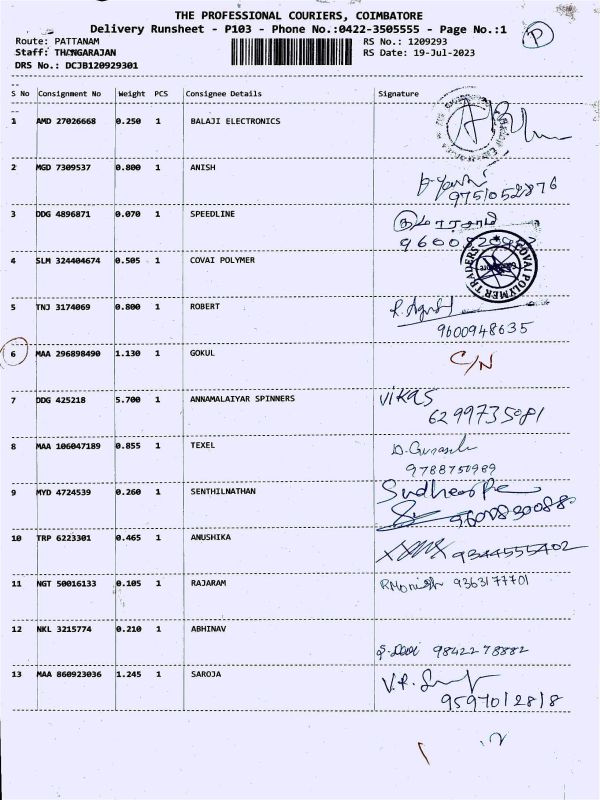 THE PROFESSIONAL COURIERS, COIMBATORE
Delivery Runsheet - P103 - Phone No.:0422-3505555 - Page No.:1
P
Route: PATTANAM
RS No.: 1209293
Staff: THANGARAJAN
RS Date: 19-Jul-2023
DRS No.: DCJB120929301
S No Consignment No Weight PCS Consignee Details Signature
1 AMD 27026668 0.250 1 BALAJI ELECTRONICS
2 MGD 7309537 0.800 1 ANISH
9751052876
3 DDG 4896871 0.070 1 SPEEDLINE
குமாரசாமி
4 SLM 324404674 0.505 1 COVAI POLYMER
COVAI POLYMER TRADERS
5 TNJ 3174069 0.800 1 ROBERT
9600948635
6 MAA 296898490 1.130 1 GOKUL C/N
7 DDG 425218 5.700 1 ANNAMALAIYAR SPINNERS VIKAS
6299735081
8 MAA 106047189 0.855 1 TEXEL
9788750989
9 MYD 4724539 0.260 1 SENTHILNATHAN
10 TRP 6223301 0.465 1 ANUSHIKA 9344555402
11 NGT 50016133 0.105 1 RAJARAM 9363177701
12 NKL 3215774 0.210 1 ABHINAV
S. Devi 9842278882
13 MAA 860923036 1.245 1 SAROJA
9597012818